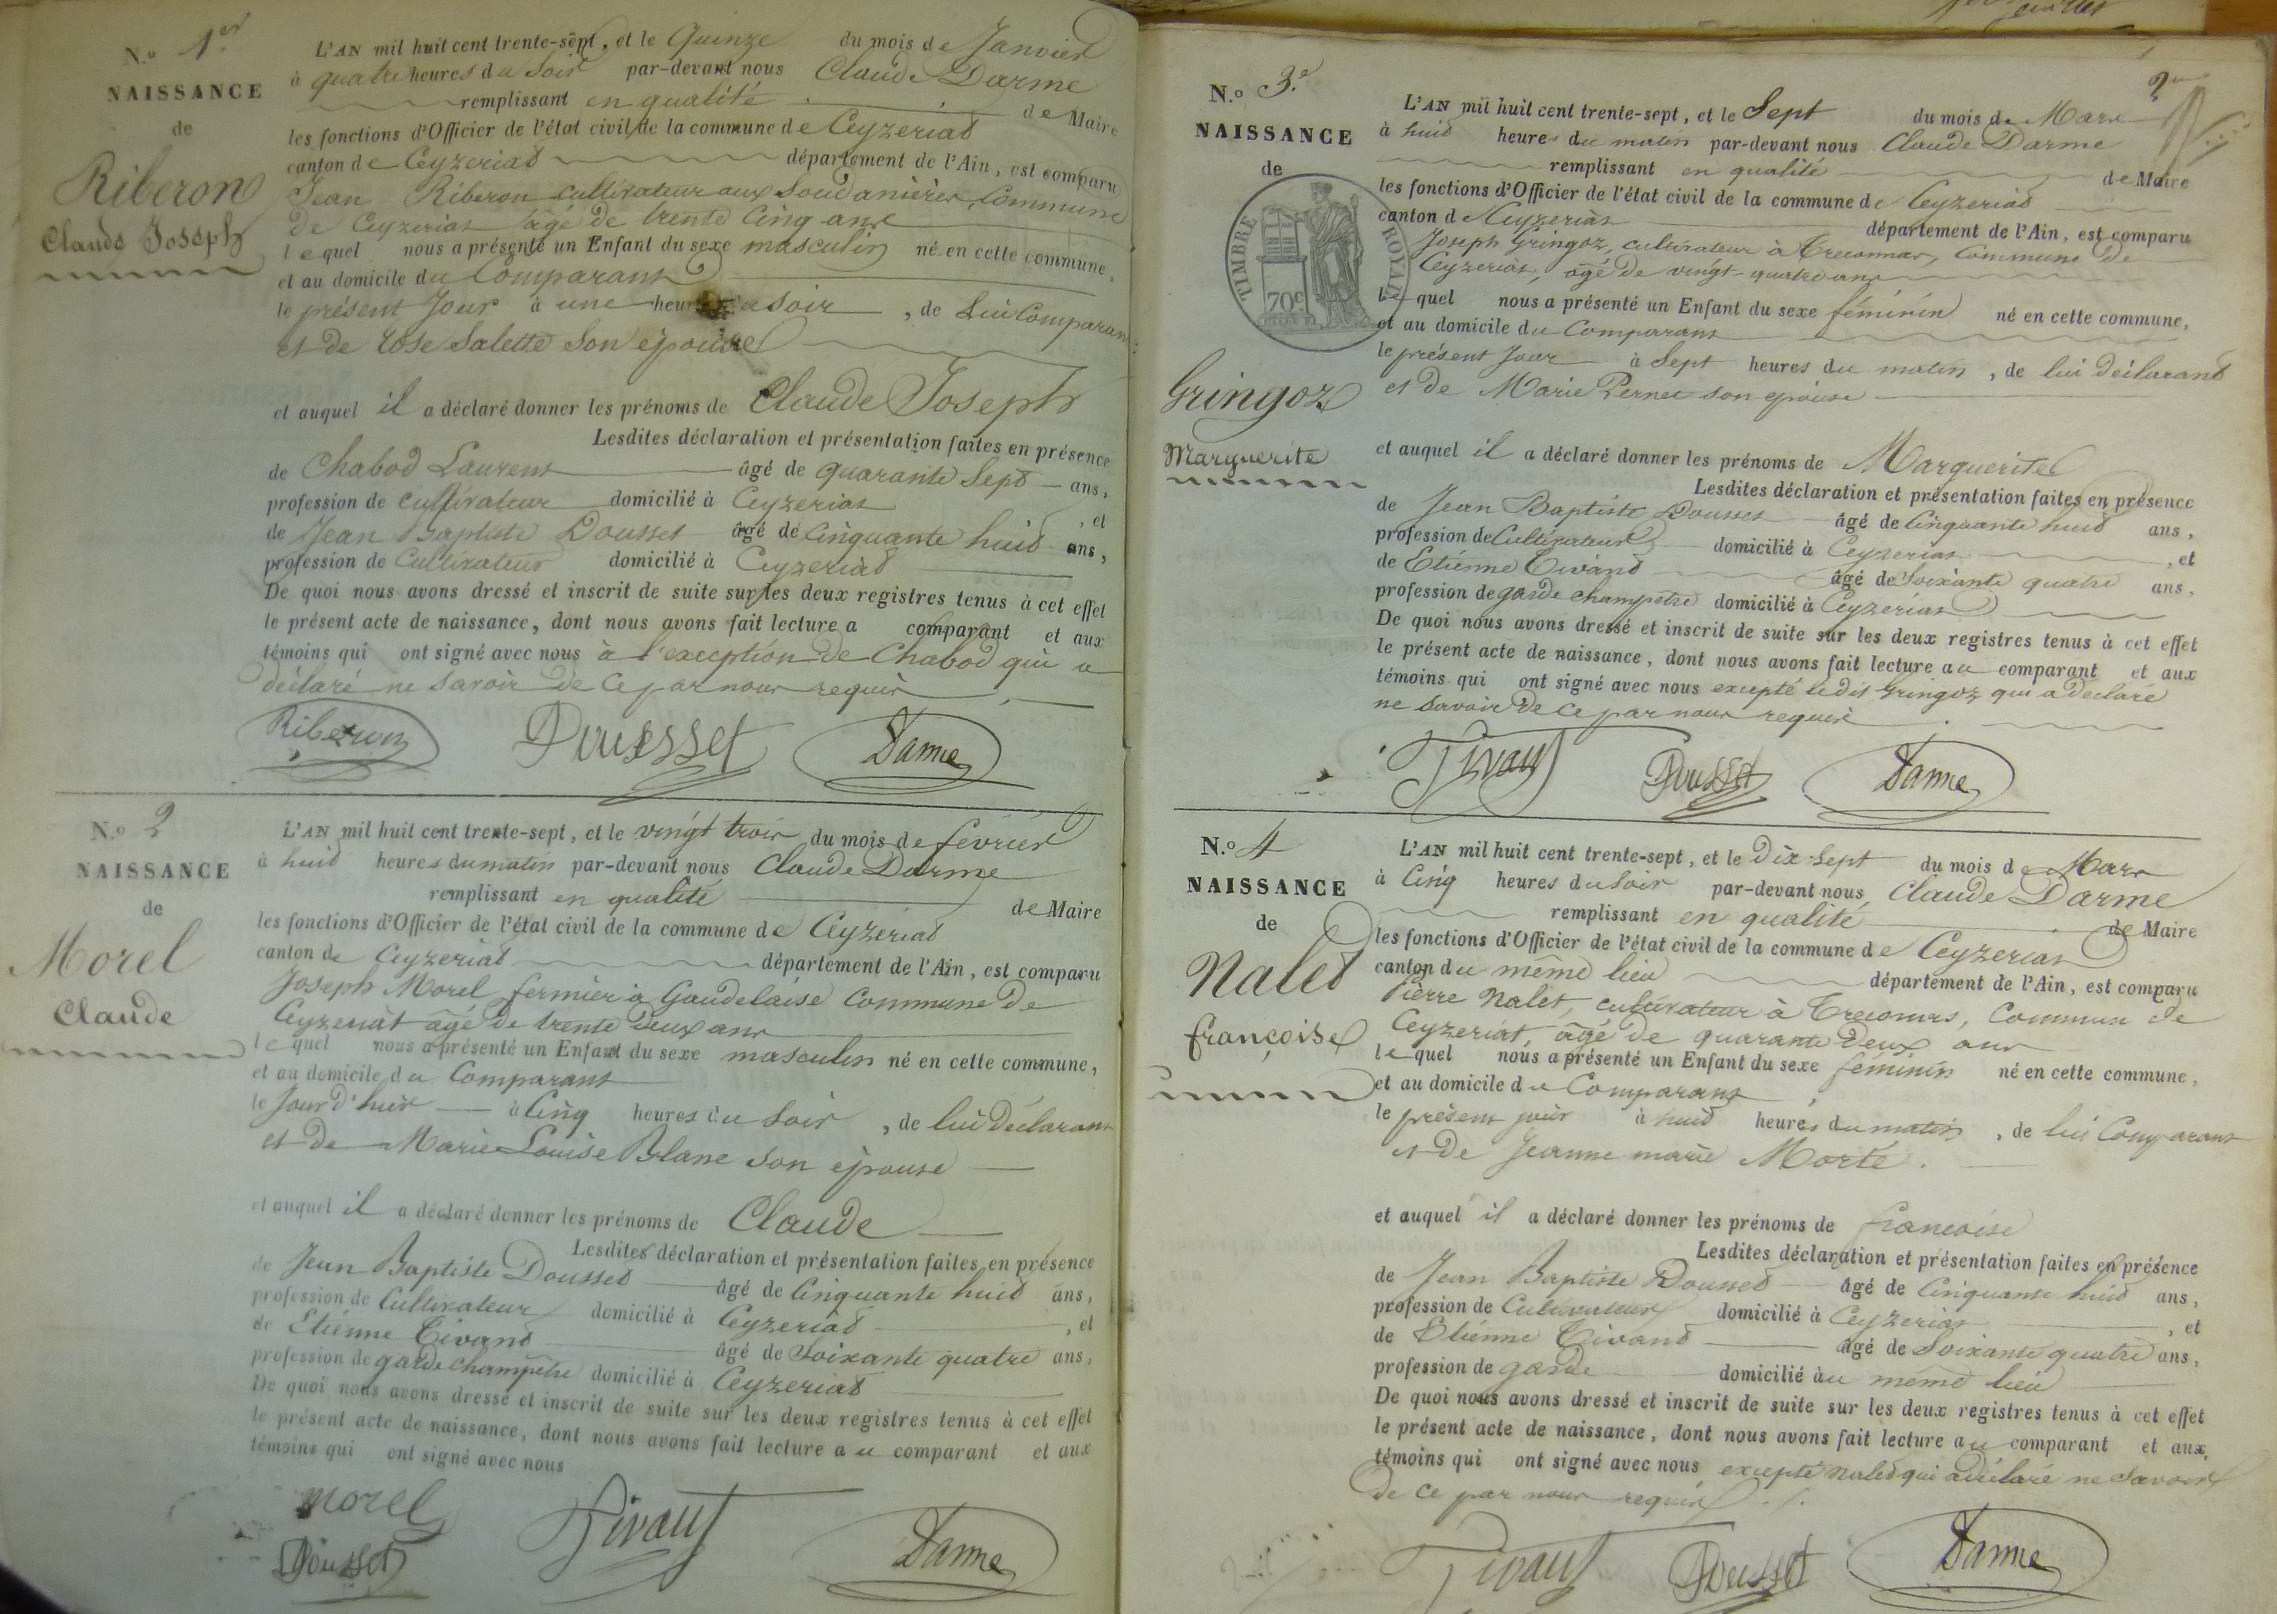 N.o 1er
NAISSANCE
de
Riberon
Claude Joseph
L'AN mil huit cent trente-sept, et le Quinze du mois de Janvier
à quatre heures du Soir par-devant nous Claude Darme
remplissant en qualité de Maire
les fonctions d'Officier de l'état civil de la commune de Ceyzeriat
canton de Ceyzeriat département de l'Ain, est comparu
Jean Riberon cultivateur aux Soudanières, Commune
de Ceyzeriat âgé de trente cinq ans
lequel nous a présenté un Enfant du sexe masculin né en cette commune,
et au domicile du Comparant
le présent Jour à une heure du Soir, de Lui Comparant
et de Rose Salette Son épouse
et auquel il a déclaré donner les prénoms de Claude Joseph
Lesdites déclaration et présentation faites en présence
de Chabod Laurent âgé de quarante Sept ans,
profession de cultivateur domicilié à Ceyzeriat, et
de Jean Baptiste Dousset âgé de Cinquante huit ans,
profession de Cultivateur domicilié à Ceyzeriat
De quoi nous avons dressé et inscrit de suite sur les deux registres tenus à cet effet
le présent acte de naissance, dont nous avons fait lecture a comparant et aux
témoins qui ont signé avec nous à l'exception de Chabod qui a
déclaré ne Savoir de ce par nous requis
Riberon Dousset Darme
N.o 2
NAISSANCE
de
Morel
Claude
L'AN mil huit cent trente-sept, et le vingt trois du mois de février
à huit heures du matin par-devant nous Claude Darme
remplissant en qualité de Maire
les fonctions d'Officier de l'état civil de la commune de Ceyzeriat
canton de Ceyzeriat département de l'Ain, est comparu
Joseph Morel fermier à Gaudelaise Commune de
Ceyzeriat âgé de trente deux ans
lequel nous a présenté un Enfant du sexe masculin né en cette commune,
et au domicile du Comparant
le Jour d'hier à Cinq heures du Soir, de lui Déclarant
et de Marie Louise Blanc Son épouse
et auquel il a déclaré donner les prénoms de Claude
Lesdites déclaration et présentation faites en présence
de Jean Baptiste Dousset âgé de Cinquante huit ans,
profession de Cultivateur domicilié à Ceyzeriat, et
de Etienne Tivant âgé de Soixante quatre ans,
profession de garde champêtre domicilié à Ceyzeriat
De quoi nous avons dressé et inscrit de suite sur les deux registres tenus à cet effet
le présent acte de naissance, dont nous avons fait lecture au comparant et aux
témoins qui ont signé avec nous
morel Tivant Darme
Dousset
2
N.o 3.e
NAISSANCE
de
TIMBRE ROYAL
70c
Gringoz
Marguerite
L'AN mil huit cent trente-sept, et le Sept du mois de Mars
à huit heures du matin par-devant nous Claude Darme
remplissant en qualité de Maire
les fonctions d'Officier de l'état civil de la commune de Ceyzeriat
canton de Ceyzeriat département de l'Ain, est comparu
Joseph Gringoz, cultivateur à Treconnas, Commune de
Ceyzeriat, âgé de vingt-quatre ans
lequel nous a présenté un Enfant du sexe féminin né en cette commune,
et au domicile du Comparant
le présent Jour à Sept heures du matin, de lui déclarant
et de Marie Pernet son épouse
et auquel il a déclaré donner les prénoms de Marguerite
Lesdites déclaration et présentation faites en présence
de Jean Baptiste Dousset âgé de Cinquante huit ans,
profession de Cultivateur domicilié à Ceyzeriat, et
de Etienne Tivand âgé de Soixante quatre ans,
profession de garde champêtre domicilié à Ceyzeriat
De quoi nous avons dressé et inscrit de suite sur les deux registres tenus à cet effet
le présent acte de naissance, dont nous avons fait lecture au comparant et aux
témoins qui ont signé avec nous excepté ledit Gringoz qui a déclaré
ne Savoir de ce par nous requis
Tivant Dousset Darme
N.o 4
NAISSANCE
de
Nalet
françoise
L'AN mil huit cent trente-sept, et le Dix-Sept du mois de Mars
à Cinq heures du Soir par-devant nous Claude Darme
remplissant en qualité de Maire
les fonctions d'Officier de l'état civil de la commune de Ceyzeriat
canton du même lieu département de l'Ain, est comparu
Pierre Nalet, cultivateur à Treconnas, Commune de
Ceyzeriat, âgé de quarante Deux ans
lequel nous a présenté un Enfant du sexe féminin né en cette commune,
et au domicile du Comparant
le présent jour à huit heures du matin, de lui Comparant
et de Jeanne marie Morte.
et auquel il a déclaré donner les prénoms de françoise
Lesdites déclaration et présentation faites en présence
de Jean Baptiste Dousset âgé de Cinquante huit ans,
profession de Cultivateur domicilié à Ceyzeriat, et
de Etienne Tivand âgé de Soixante quatre ans,
profession de garde domicilié au même lieu
De quoi nous avons dressé et inscrit de suite sur les deux registres tenus à cet effet
le présent acte de naissance, dont nous avons fait lecture au comparant et aux
témoins qui ont signé avec nous excepté Nalet qui a déclaré ne Savoir
de ce par nous requis
Tivant Dousset Darme